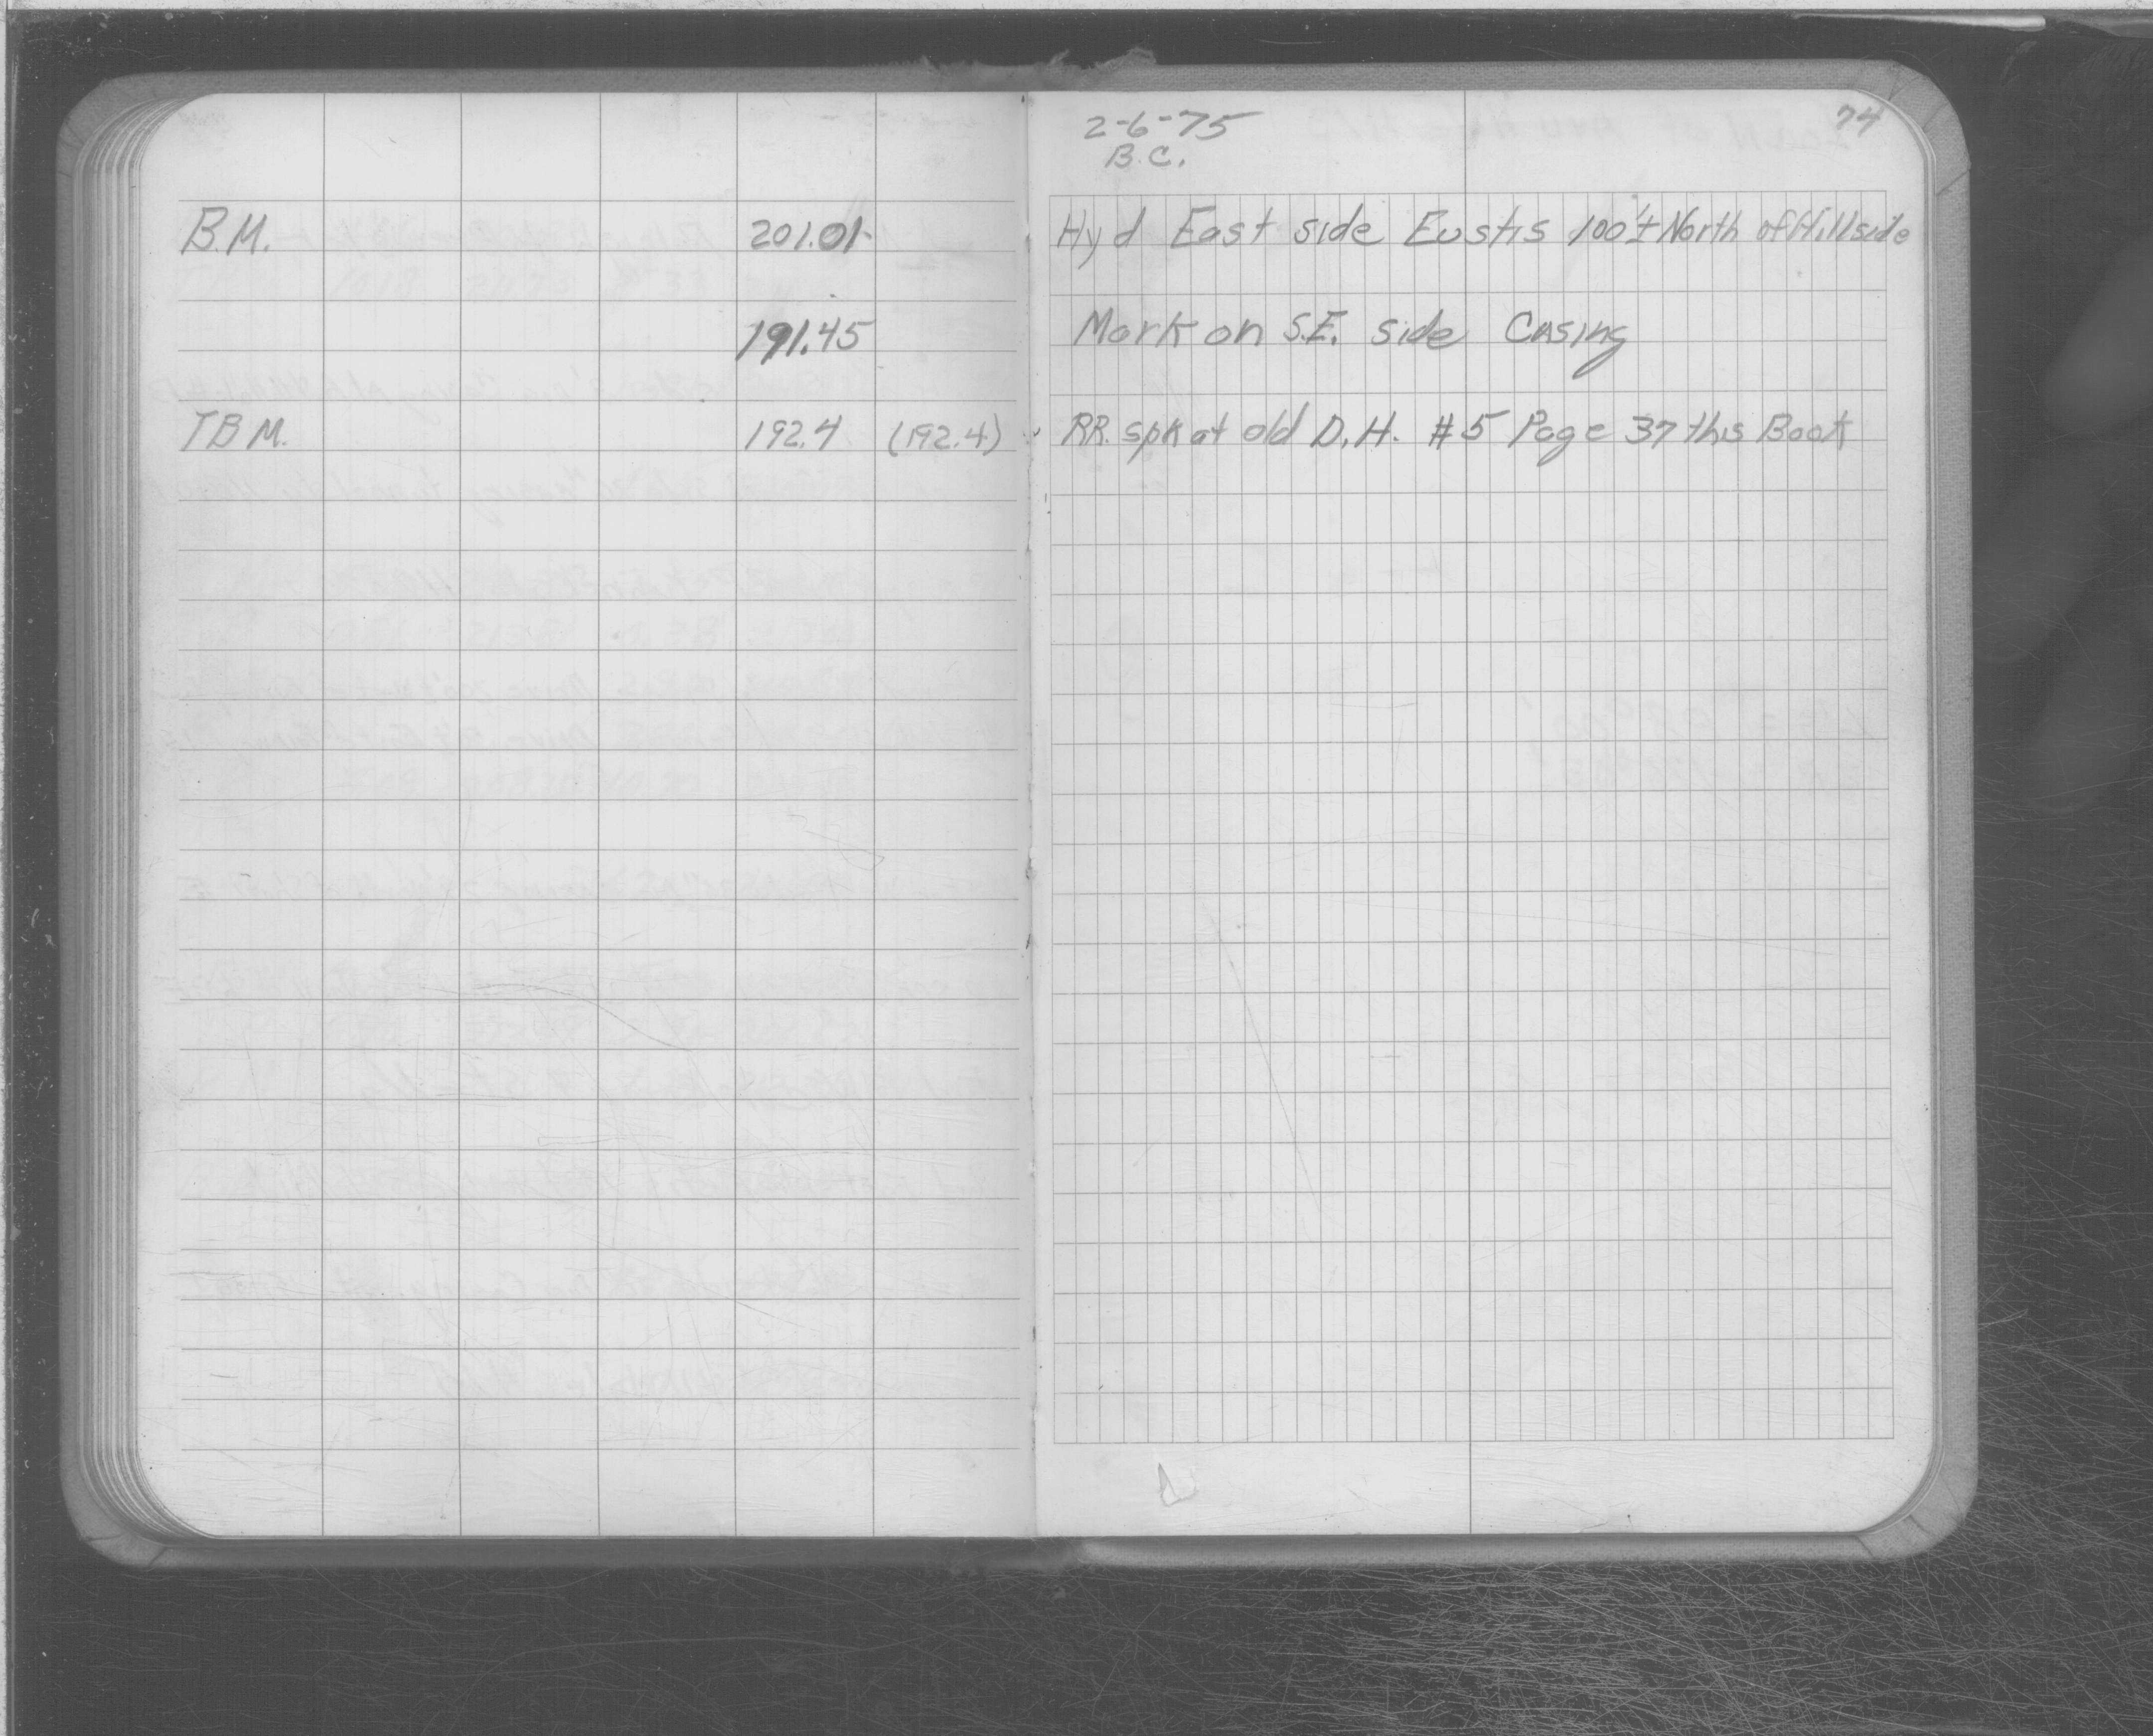 2-6-75 74
B.C.
B.M. 201.01 Hyd East side Eustis 100'± North of Hillside
191.45 Mark on S.E. side Casing
T B M. 192.4 (192.4) RR. spk at old D.H. #5 Page 37 this Book